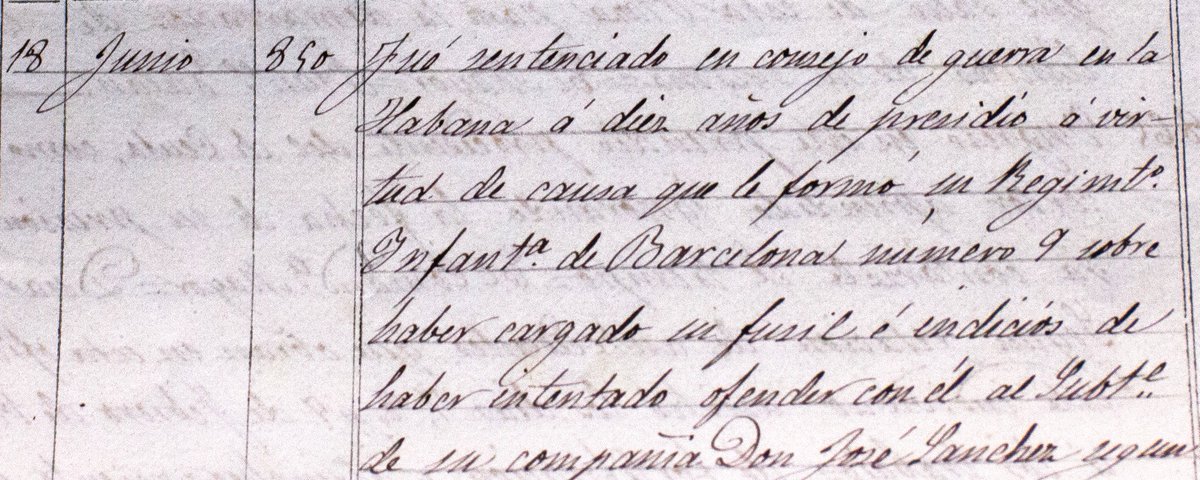 18 Junio 850 Fué sentenciado en consejo de guerra en la
Habana á diez años de presidio á vir-
tud de causa que le formó su Regimto.
Infanta. de Barcelona número 9 sobre
haber cargado su fusil é indicios de
haber intentado ofender con él al Subte.
de su compañia Don José Sanchez segun